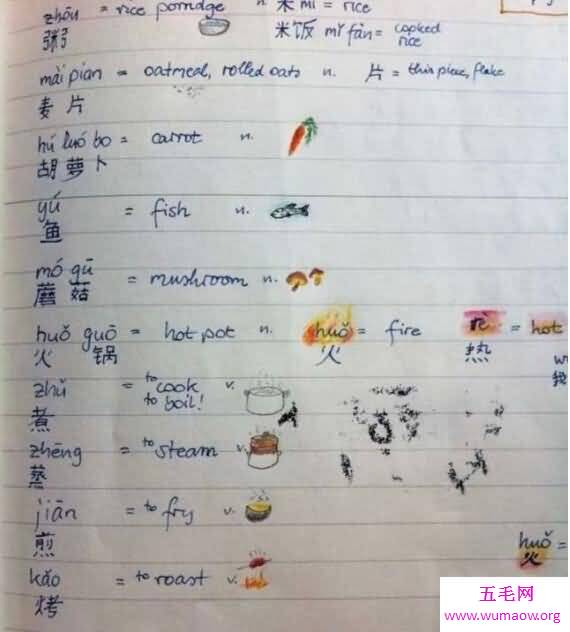 zhōu = rice porridge n. 米 mǐ = rice
粥 米饭 mǐ fàn = cooked rice
mài piàn = oatmeal, rolled oats n. 片 = thin piece, flake
麦片
hú luó bo = carrot n.
胡萝卜
yú = fish n.
鱼
mó gū = mushroom n.
蘑菇
huǒ guō = hot pot n. huǒ = fire rè = hot
火锅 火 热
zhǔ = to cook v.
to boil!
煮
我
zhēng = to steam v.
蒸
jiān = to fry v.
煎
huǒ =
火
kǎo = to roast v.
烤
五毛网
www.wumaow.org